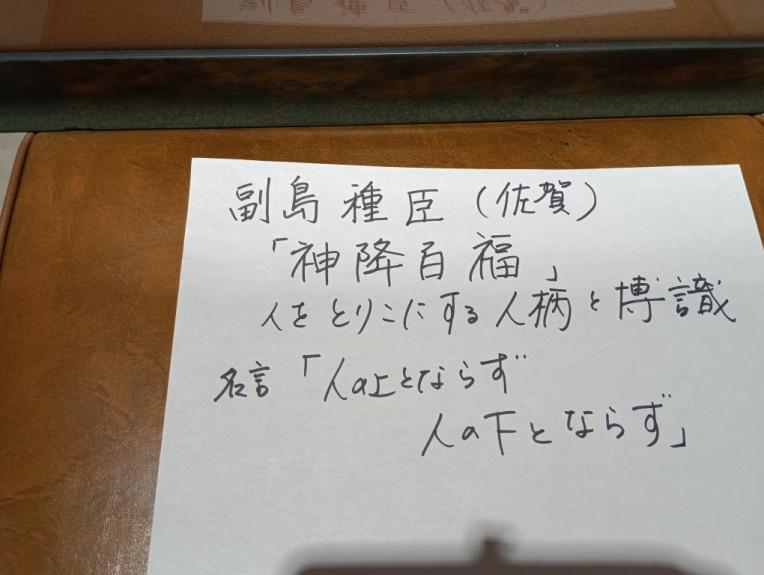 副島種臣(佐賀)
「神降百福」
人をとりこにする人柄と博識
名言「人の上とならず
人の下とならず」